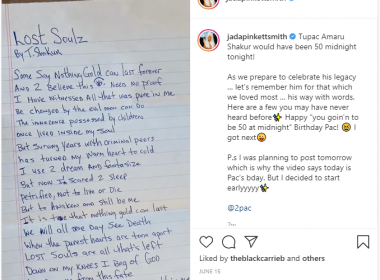 Lost Soulz
By T. Shakur
Some Say Nothing Gold can last forever
And 2 Believe this I Need No proof
I Have Witnessed All that was pure in me
Be changed by the evil men can Do
The innocence possessed by children
once lived inside my Soul
But Surving Years with Criminal peers
has turned my warm heart to cold
I use 2 dream And fantasize
But now I'm Scared 2 Sleep
Petrified, Not to live or Die
But to Awaken and still be me
It is true that nothing gold can last
We will all one Day See Death
When the purest hearts are torn apart
LOST Souls are all what's left
Down on my Knees I Beg of GOD
from this fate
jadapinkettsmith
jadapinkettsmith Tupac Amaru
Shakur would have been 50 midnight
tonight!
As we prepare to celebrate his legacy
... let's remember him for that which
we loved most ... his way with words.
Here are a few you may have never
heard before Happy "you goin'n to
be 50 at midnight" Birthday Pac! I
got next
P.s I was planning to post tomorrow
which is why the video says today is
Pac's bday. But I decided to start
earlyyyyy
@2pac
Liked by theblackcarrieb and others
JUNE 15